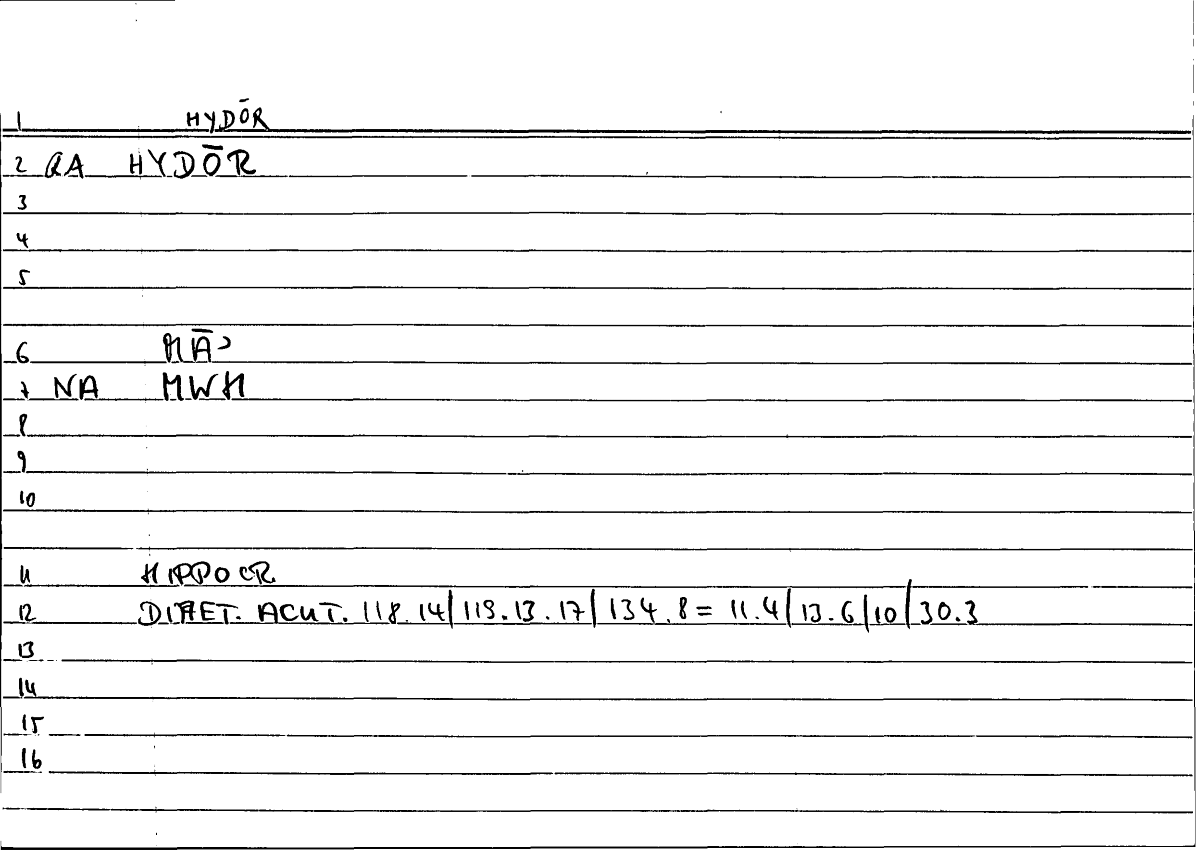 1 HYDŌR
2 QA HYDŌR
3
4
5
6 MĀʾ
7 NA MWH
8
9
10
11 HIPPOCR.
12 DIAET. ACUT. 118.14/119.13.17/134.8 = 11.4/13.6/10/30.3
13
14
15
16